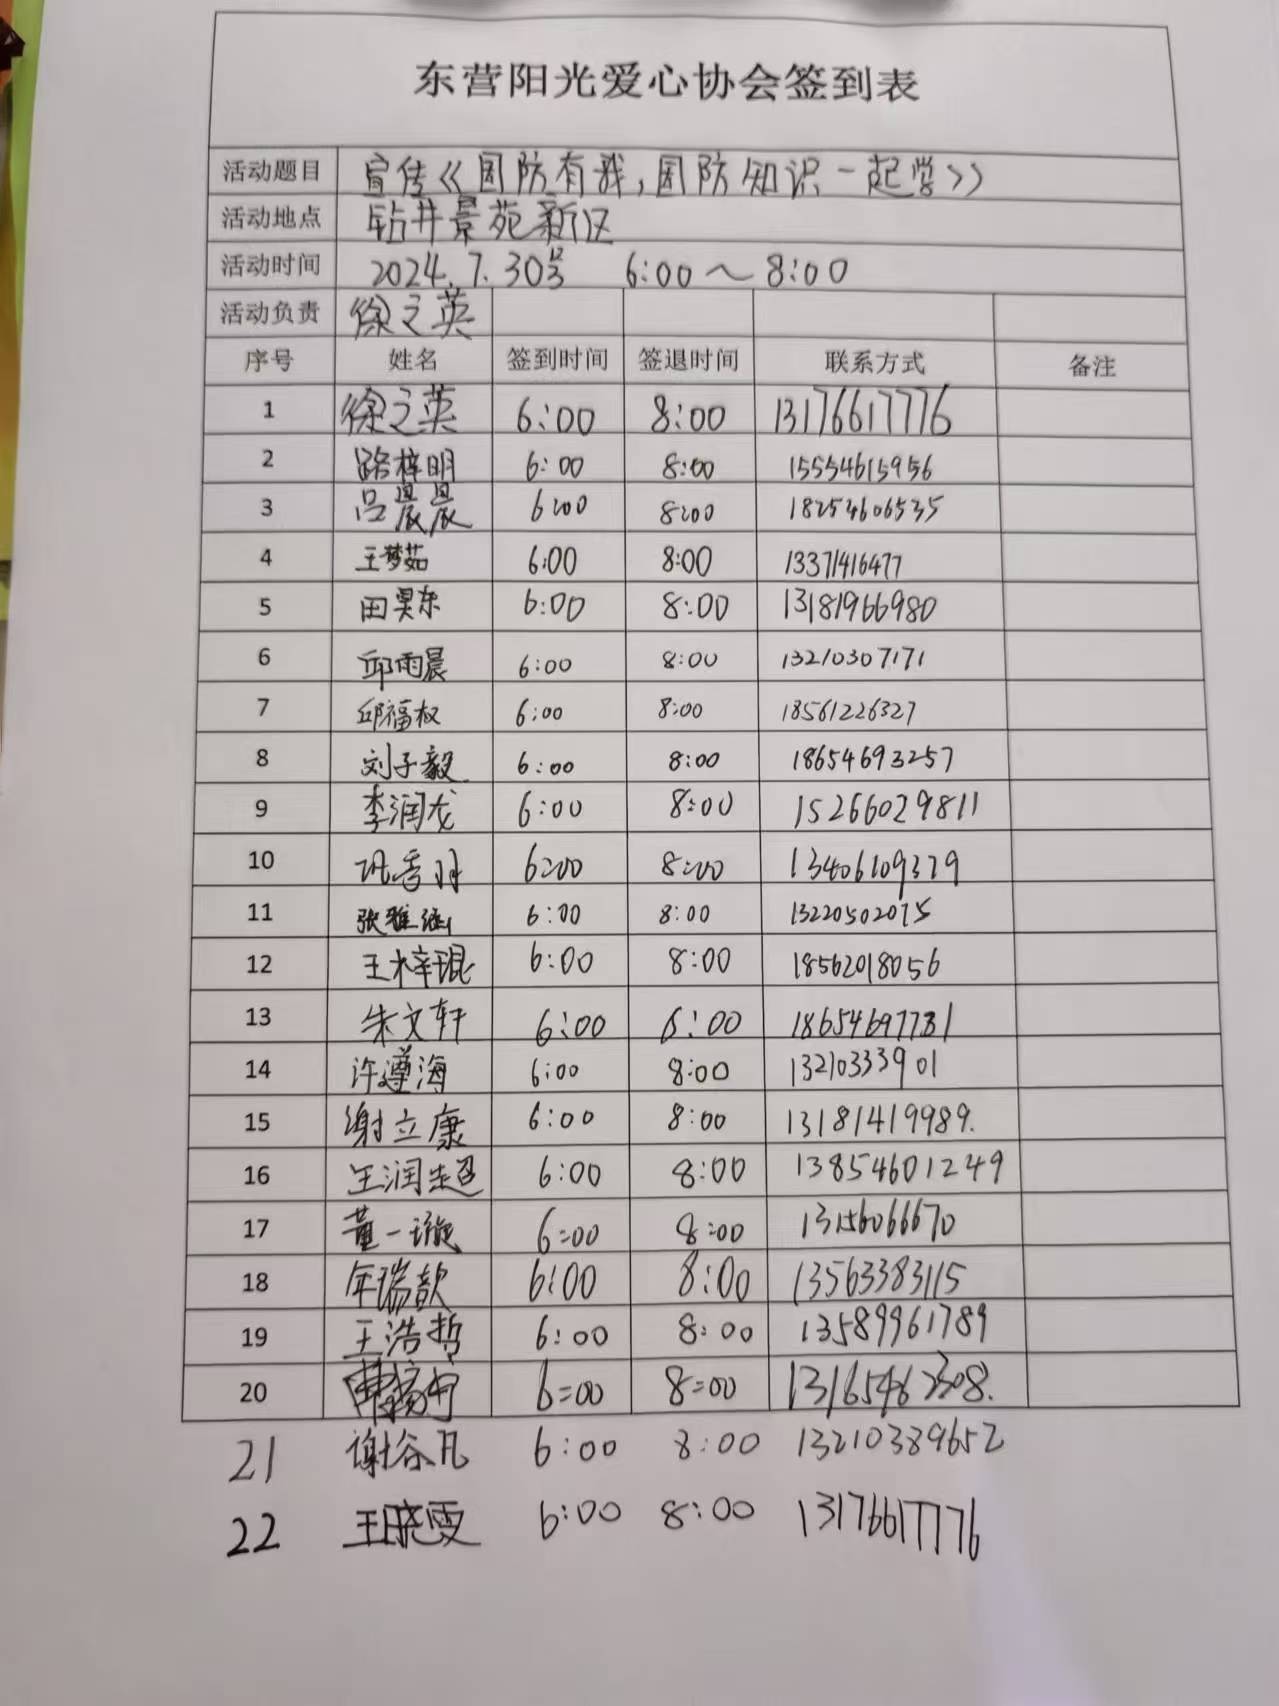 东营阳光爱心协会签到表
活动题目 宣传《国防有我,国防知识一起学》
活动地点 钻井景苑新区
活动时间 2024.7.30号 6:00～8:00
活动负责 徐之英
序号 姓名 签到时间 签退时间 联系方式 备注
1 徐之英 6:00 8:00 13176617776
2 路梓明 6:00 8:00 15554615956
3 吕晨晨 6:00 8:00 18254606535
4 王梦茹 6:00 8:00 13371416477
5 田昊东 6:00 8:00 13181966980
6 邱雨晨 6:00 8:00 13210307171
7 邱福权 6:00 8:00 18561226327
8 刘子毅 6:00 8:00 18654693257
9 李润龙 6:00 8:00 15266029811
10 6:00 8:00 13406109379
11 张雅涵 6:00 8:00 13220502075
12 王梓琨 6:00 8:00 18562018056
13 朱文轩 6:00 8:00 18654697781
14 许遵海 6:00 8:00 13210333901
15 谢立康 6:00 8:00 13181419989.
16 王润超 6:00 8:00 13854601249
17 董一璇 6:00 8:00 13156066670
18 年瑞歆 6:00 8:00 13563383115
19 王浩哲 6:00 8:00 13589961789
20 6:00 8:00
21 谢谷凡 6:00 8:00 13210389652
22 王晓雯 6:00 8:00 13176617776